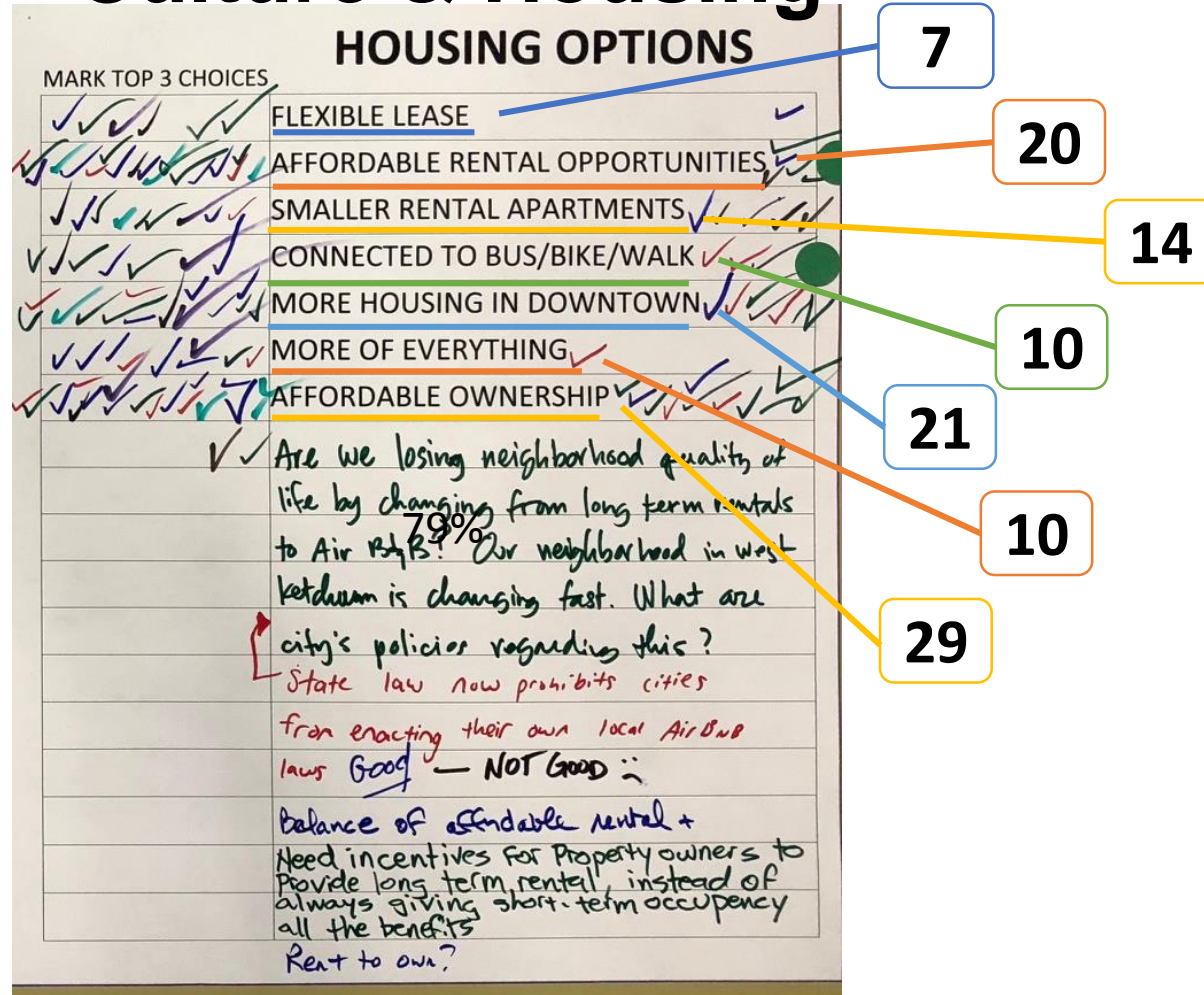 Culture & Housing
HOUSING OPTIONS
MARK TOP 3 CHOICES
FLEXIBLE LEASE
7
AFFORDABLE RENTAL OPPORTUNITIES
20
SMALLER RENTAL APARTMENTS
14
CONNECTED TO BUS/BIKE/WALK
10
MORE HOUSING IN DOWNTOWN
21
MORE OF EVERYTHING
10
AFFORDABLE OWNERSHIP
29
Are we losing neighborhood quality of
life by changing from long term rentals
79%
to Air B&B? Our neighborhood in west
Ketchum is changing fast. What are
city's policies regarding this?
State law now prohibits cities
from enacting their own local AirBNB
laws Good — NOT GOOD :(
Balance of affordable rental +
Need incentives for Property owners to
Provide long term rental, instead of
always giving short-term occupency
all the benefits
Rent to own?